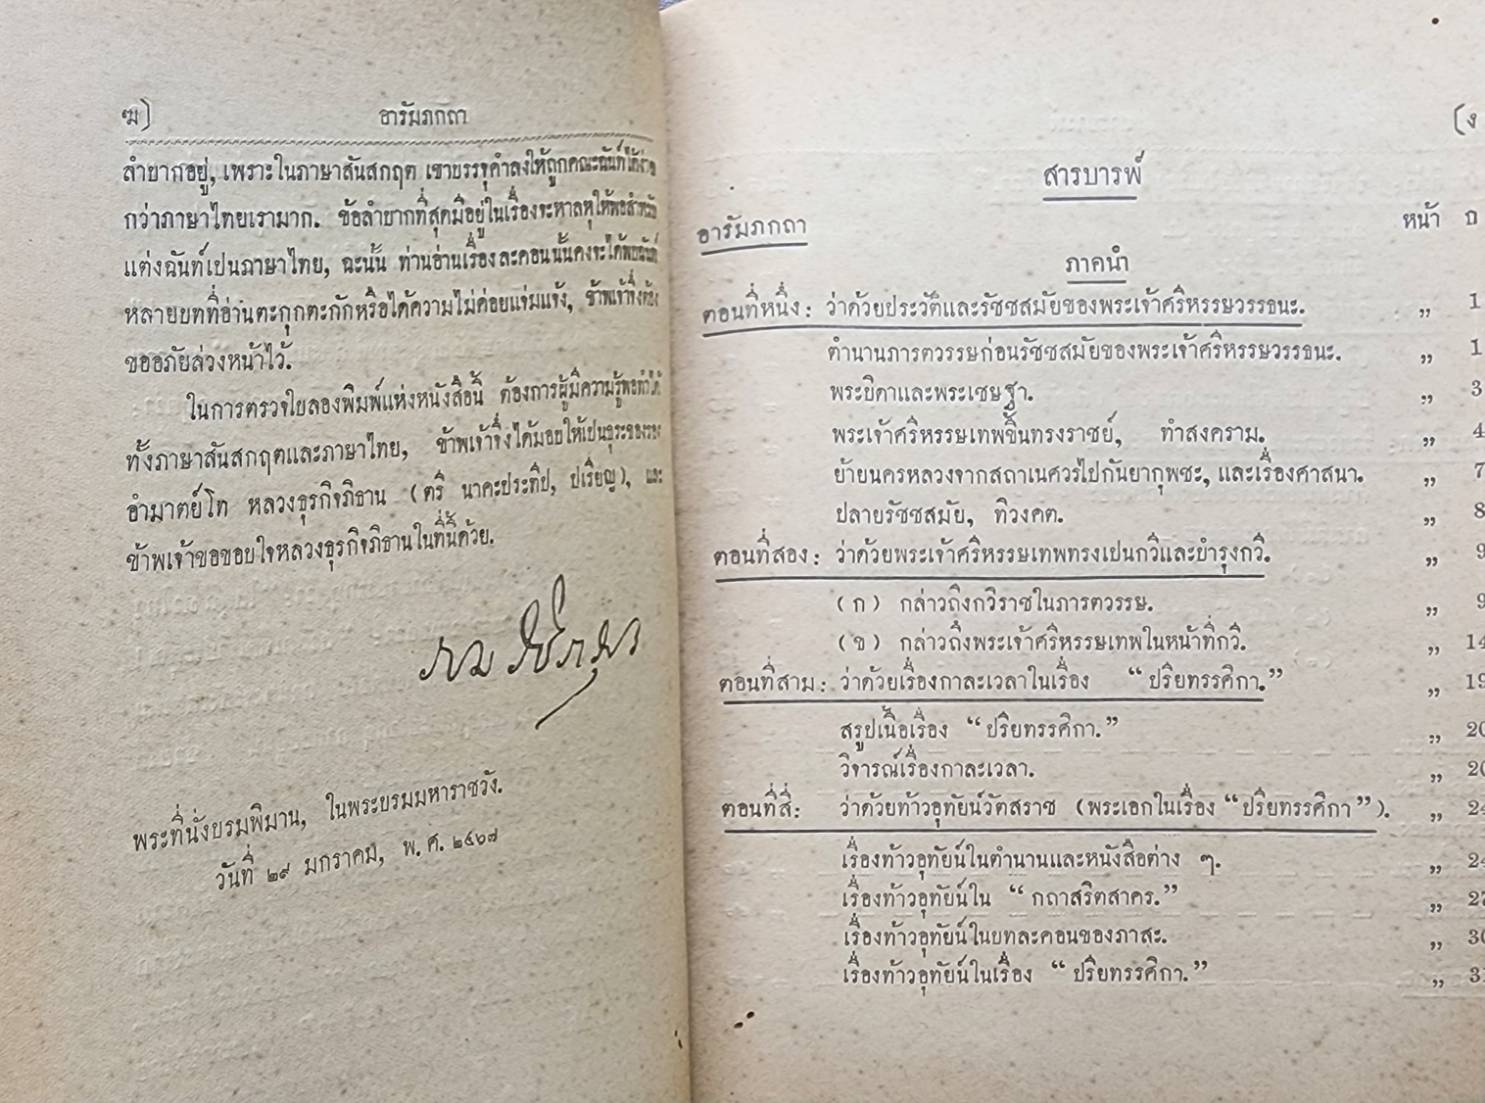 ฆ)
อารัมภกถา
ลำยากอยู่, เพราะในภาษาสันสกฤต เขาบรรจุคำลงให้ถูกคณะฉันท์ได้ง่าย
กว่าภาษาไทยเรามาก. ข้อลำยากที่สุดมีอยู่ในเรื่องจะหาลหุให้พอสำหรับ
แต่งฉันท์เปนภาษาไทย, ฉะนั้น ท่านอ่านเรื่องละคอนนั้นคงจะได้พบฉันท์
หลายบทที่อ่านตะกุกตะกักหรือได้ความไม่ค่อยแจ่มแจ้ง, ข้าพเจ้าจึ่งต้อง
ขออภัยล่วงหน้าไว้.
ในการตรวจใบลองพิมพ์แห่งหนังสือนี้ ต้องการผู้มีความรู้พอทำได้
ทั้งภาษาสันสกฤตและภาษาไทย, ข้าพเจ้าจึ่งได้มอบให้เปนธุระของรอง
อำมาตย์โท หลวงธุรกิจภิธาน (ตรี นาคะประทีป, ปเรียญ), และ
ข้าพเจ้าขอขอบใจหลวงธุรกิจภิธานในที่นี้ด้วย.
ราม วชิราวุธ
พระที่นั่งบรมพิมาน, ในพระบรมมหาราชวัง.
วันที่ ๒๙ มกราคม, พ. ศ. ๒๔๖๗
(ง
สารบารพ์
อารัมภกถา หน้า ก
ภาคนำ
ตอนที่หนึ่ง: ว่าด้วยประวัติและรัชชสมัยของพระเจ้าศรีหรรษวรรธนะ. ,, 1
ตำนานภารตวรรษก่อนรัชชสมัยของพระเจ้าศรีหรรษวรรธนะ. ,, 1
พระบิดาและพระเชษฐา. ,, 3
พระเจ้าศรีหรรษเทพขึ้นทรงราชย์, ทำสงคราม. ,, 4
ย้ายนครหลวงจากสถาเนศวรไปกันยากุพชะ, และเรื่องศาสนา. ,, 7
ปลายรัชชสมัย, ทิวงคต. ,, 8
ตอนที่สอง: ว่าด้วยพระเจ้าศรีหรรษเทพทรงเปนกวีและบำรุงกวี. ,, 9
(ก) กล่าวถึงกวีราชในภารตวรรษ. ,, 9
(ข) กล่าวถึงพระเจ้าศรีหรรษเทพในหน้าที่กวี. ,, 14
ตอนที่สาม: ว่าด้วยเรื่องกาละเวลาในเรื่อง “ปริยทรรศิกา.” ,, 19
สรูปเนื้อเรื่อง “ปริยทรรศิกา.” ,, 20
วิจารณ์เรื่องกาละเวลา. ,, 20
ตอนที่สี่: ว่าด้วยท้าวอุทัยน์วัตสราช (พระเอกในเรื่อง “ปริยทรรศิกา”). ,, 24
เรื่องท้าวอุทัยน์ในตำนานและหนังสือต่าง ๆ. ,, 24
เรื่องท้าวอุทัยน์ใน “กถาสริตสาคร.” ,, 27
เรื่องท้าวอุทัยน์ในบทละคอนของภาสะ. ,, 30
เรื่องท้าวอุทัยน์ในเรื่อง “ปริยทรรศิกา.” ,,